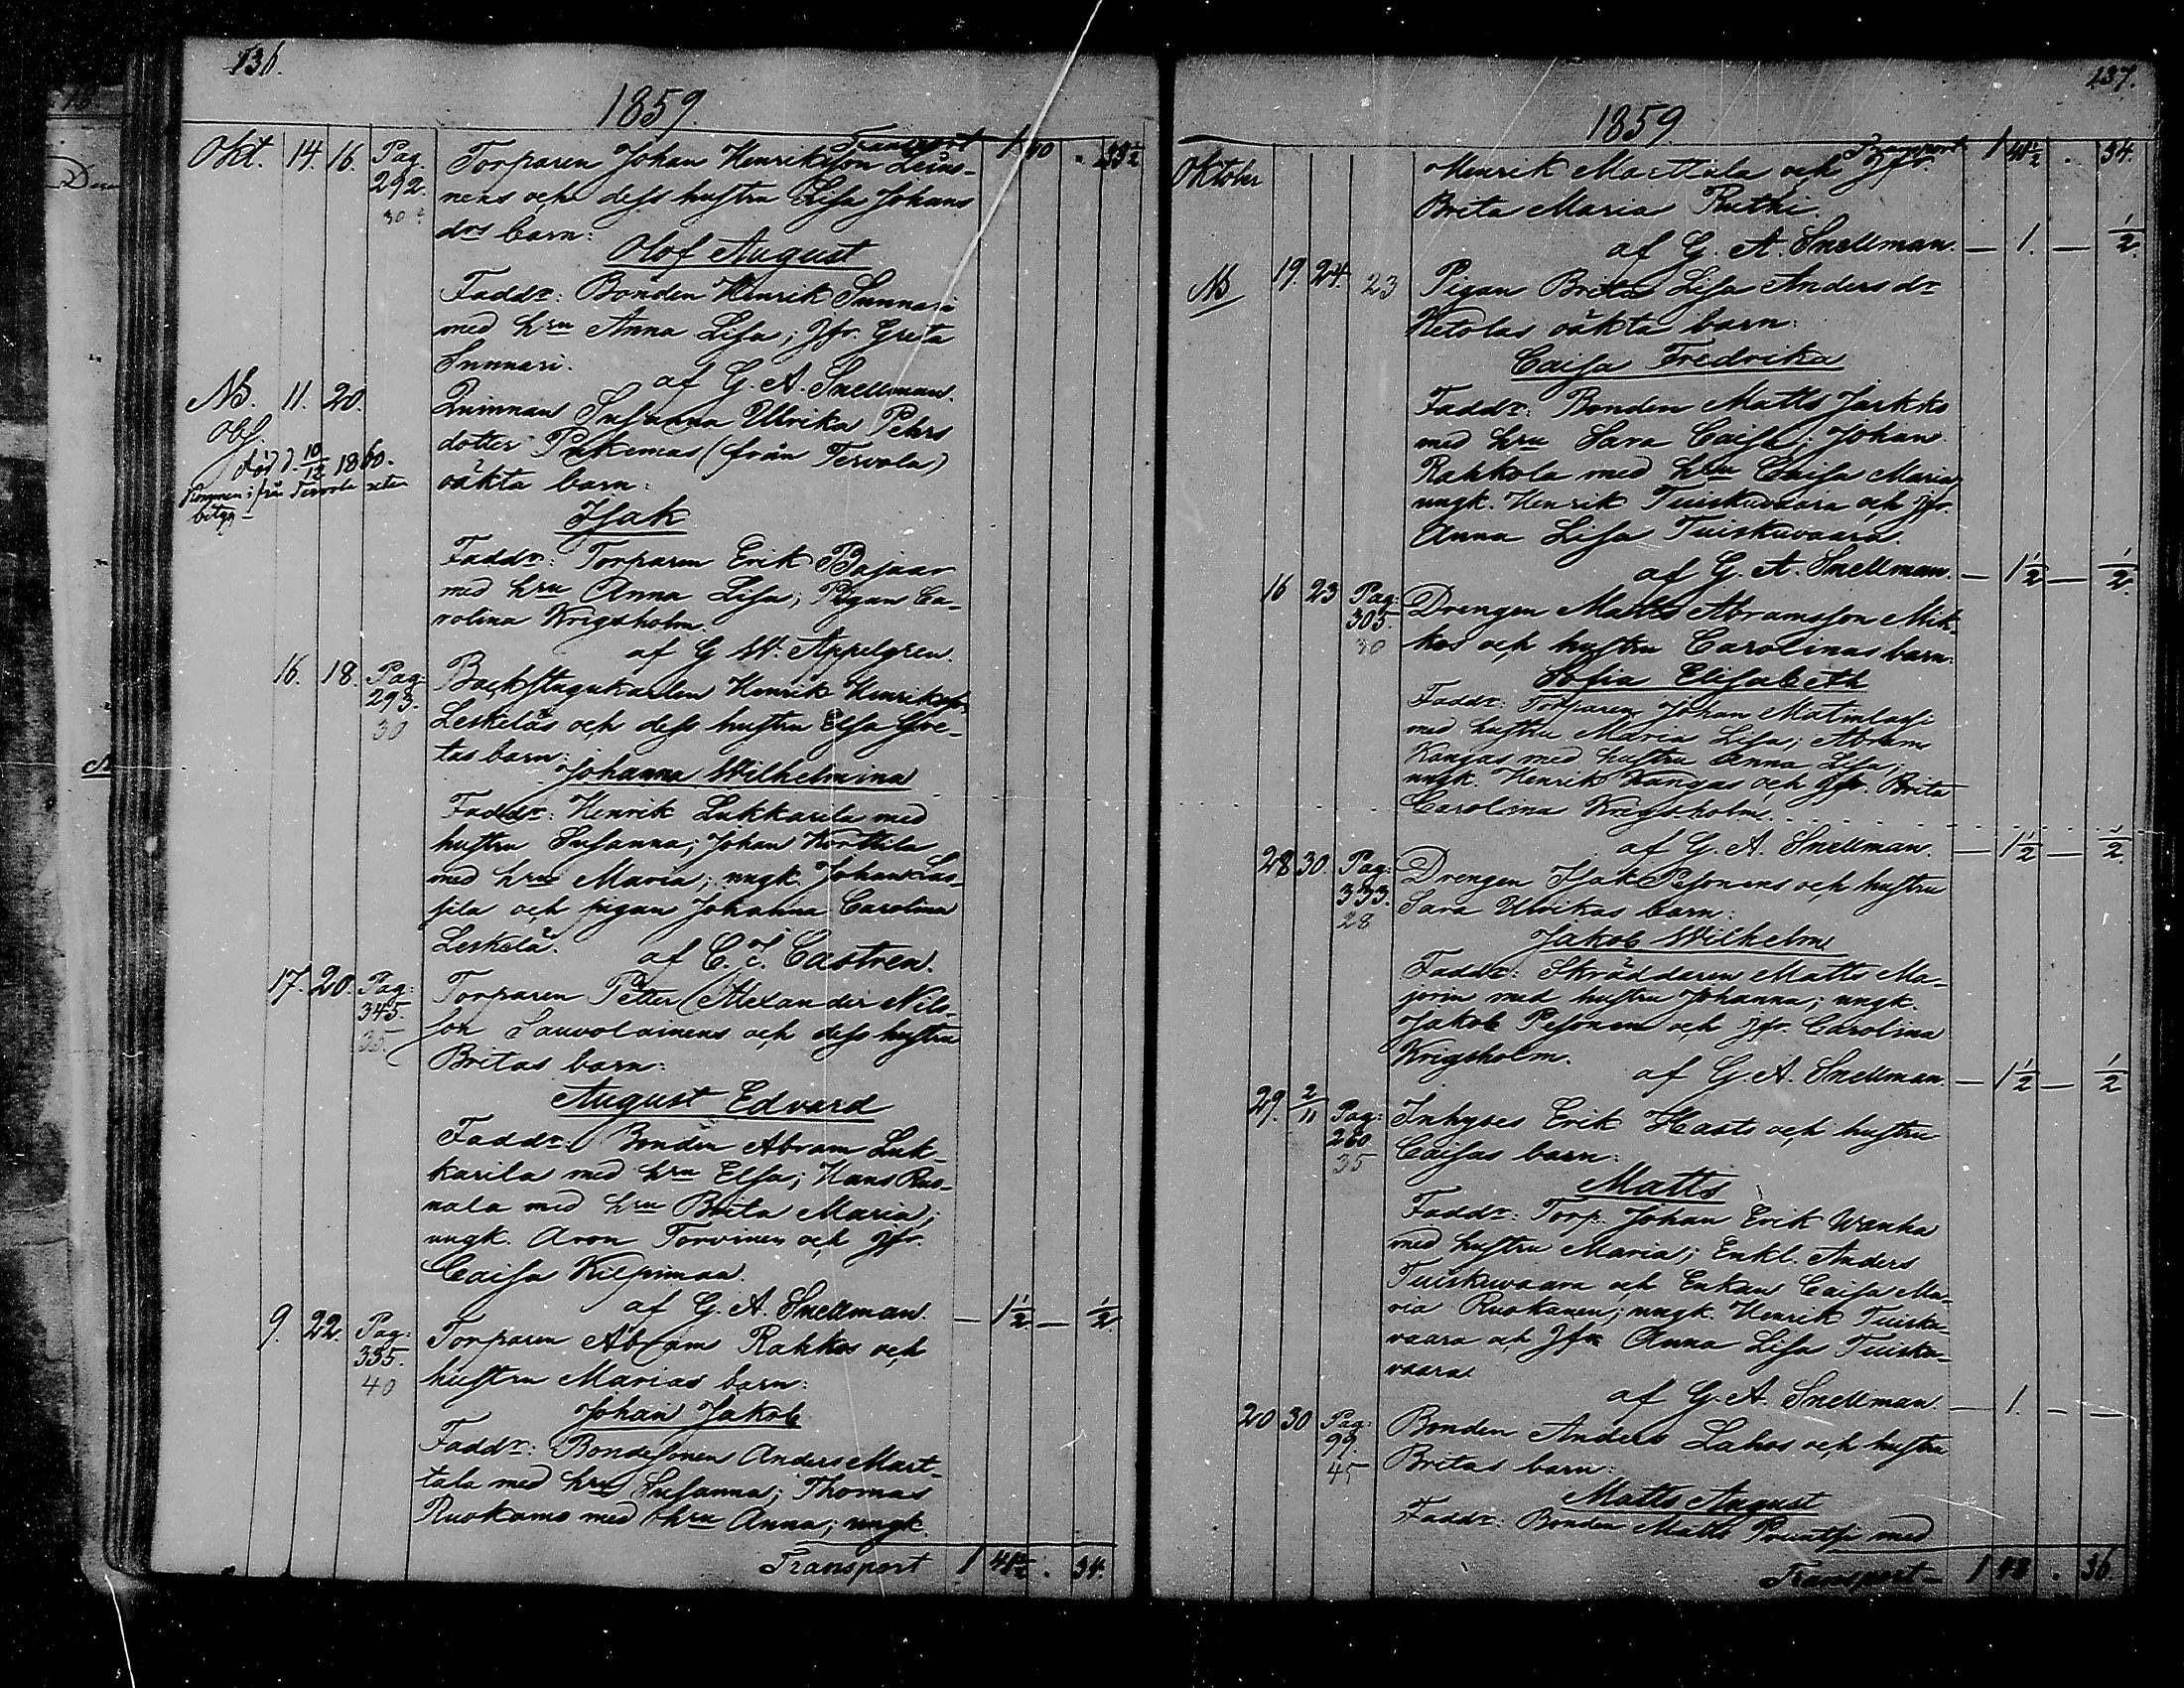 136.
1859.
Transport 1 40 . 33½
Okt. 14. 16. Pag. 292. 30 Torparen Johan Henriksson Leino-
nens och dess hustru Elsa Johans
drs barn:
Olof August
Faddr: Bonden Henrik Sunnari
med hru Anna Lisa; Jfr. Greta
Sunnari.
af G. A. Snellman.
NB. 11. 20. Qvinnans Susanna Ulrika Pehrs
Obs.
död d. 10/12 1860.
dotter (från Tervola)
oäkta barn:
Isak
Faddr: Torparen Erik Pajaar
med hru Anna Lisa; Pigan Ca-
rolina Krigsholm
af G W. Appelgren.
16. 18. Pag: 293. 30 Backstugukarlen Henrik Henrikss.
Leskeläs och dess hustru Elsa Gre-
tas barn:
Johanna Wilhelmina
Faddr: Henrik Lukkarila med
hustru Susanna; Johan Korttila
med hru Maria; ungk. Johan Las-
sila och pigan Johanna Carolina
Leskelä.
af C. J. Castren.
17. 20. Pag: 345. 35 Torparen Petter Alexander Nils-
son Sauvolainens och dess hustru
Britas barn:
August Edvard
Faddr: Bonden Abram Luk-
karila med hru Elsa; Hans Ruo-
nala med hru Brita Maria;
ungk. Aron Torvinen och Jfr.
Caisa Kilpimaa.
af G. A. Snellman. — 1½ — ½
9. 22. Pag: 335. 40 Torparen Abram Rahkos och
hustru Marias barn:
Johan Jakob
Faddr: Bondesonen Anders Mart-
tala med hru Susanna; Thomas
Ruokamo med hru Anna; ungk.
Transport 1 41½ . 34.
137.
1859
Transport 1 41½ . 34.
Oktober Henrik Marttala och Jfr.
Brita Maria Ruthi.
af G. A. Snellman. — 1. — ½
NB 19. 24. 23 Pigan Brita Lisa Anders dr
Ketolas oäkta barn:
Caisa Fredrika
Faddr: Bonden Matts Jarkko
med hru Sara Caisa; Johan
Rahkola med hru Caisa Maria,
ungk. Henrik Tuiskuvaara och Jfr.
Anna Lisa Tuiskuvaara.
af G. A. Snellman. — 1½ — ½
16 23 Pag: 305. 30 Drengen Matts Abramsson Mik-
kos och hustru Carolinas barn:
Sofia Elisabeth
Faddr: Torparen Johan Matinlassi
med hustru Maria Lisa; Abram
Kangas med hustru Anna Lisa;
ungk. Henrik Kangas och Jfr. Brita
Carolina Krigsholm.
af G. A. Snellman. — 1½ — ½
28 30. Pag: 333. 28 Drengen Isak Pesonens och hustru
Sara Ulrikas barn:
Jakob Wilhelm
Faddr: Skräddaren Matts Ma-
jorin med hustru Johanna; ungk.
Jakob Pesonen och jfr. Carolina
Krigsholm.
af G. A. Snellman. — 1½ — ½
29. 2/11 Pag: 260 35 Inhyses Erik Hasts och hustru
Caisas barn:
Matts
Faddr: Torp. Johan Erik Wanha
med hustru Maria; Enkl. Anders
Tuiskuvaara och Enkan Caisa Ma-
ria Ruokanen; ungk. Henrik Tuisku-
vaara och Jfr Anna Lisa Tuisku-
vaara.
af G. A. Snellman. — 1 — —
20 30 Pag: 99. 45 Bonden Anders Lahos och hustru
Britas barn:
Matts August
Faddr: Bonden Matts med
Transport 1 48 . 36.